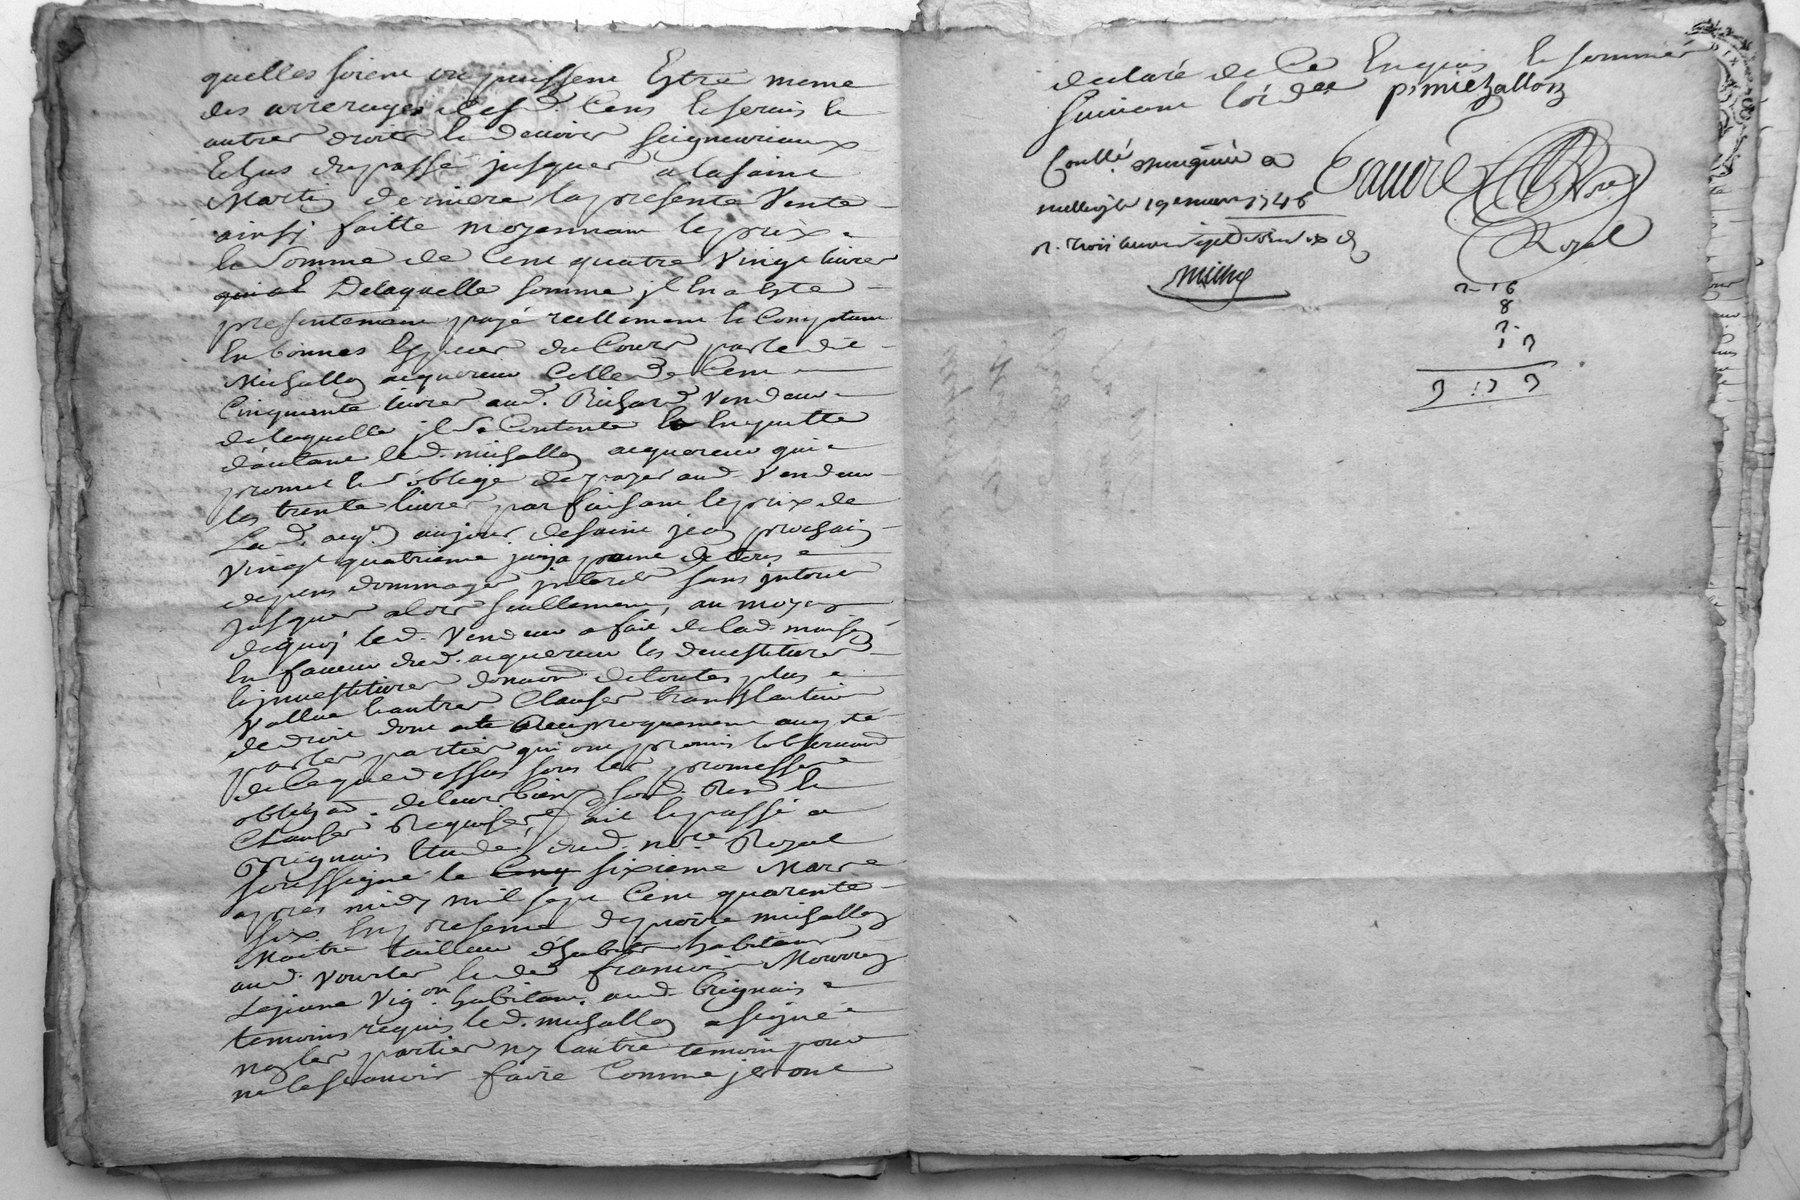 quelles soient ou puissent Estre meme
des arrerages desd. Cens & servis &
autres droits & devoirs seigneuriaux
Echus du passé jusques a la saint
Martin derniere la presente Vente
ainsy faitte moyennant le prix &
la somme de Cent quatre Vingt livres
Delaquelle somme jl En a Esté
presentement payé reellement & Comptant
En bonnes Especes du Cours par led.
Michallon acquereur Celle de Cent
Cinquante livres aud. Richard Vendeur
de laquelle jl se Contente & En quitte
d'autant led. michallon acquereur qui
promet & s'oblige de payer aud. Vendeur
les trente livres parfaisant le prix de
Lad. aqn. au jour de saint jean prochain
Vingt quatrieme juin a peine de tous
depens dommages jnterets sans jnterets
jusques alors seullement, au moyen
de quoy led. Vendeur a fait de lad. maison
En faveur dud. acquereur les devestitures
& jnvestitures donaon. de toutes plus
Vallue & autres Clauses translatives
de droit dont acte Reciproquement accepté
par les parties qui ont promis lobservaon.
de Ce que dessus sous les promesses
obligaon. de leurs biens soum. Renon. &
Clauses Requises, fait & passé a
Brignais Etude dud. nore. Royal
soussigné le sixieme Mars
apres midy mil sept Cent quarente
six En presence de pierre michallon
Maitre tailleur d'habits habitant
aud. Vourles & de francois
Lejeune Vigon. habitant aud. brignais
temoins requis led. michallon a signé
non les parties ny l'autre temoin pour
ne le scavoir faire Comme jls ont
declaré de Ce Enquis & sommés
suivant lordce. p. michallon
Conllé. a
milleryle 19 mars 1746
R. trois livres dix sept sols
Royal
2 - 16
8